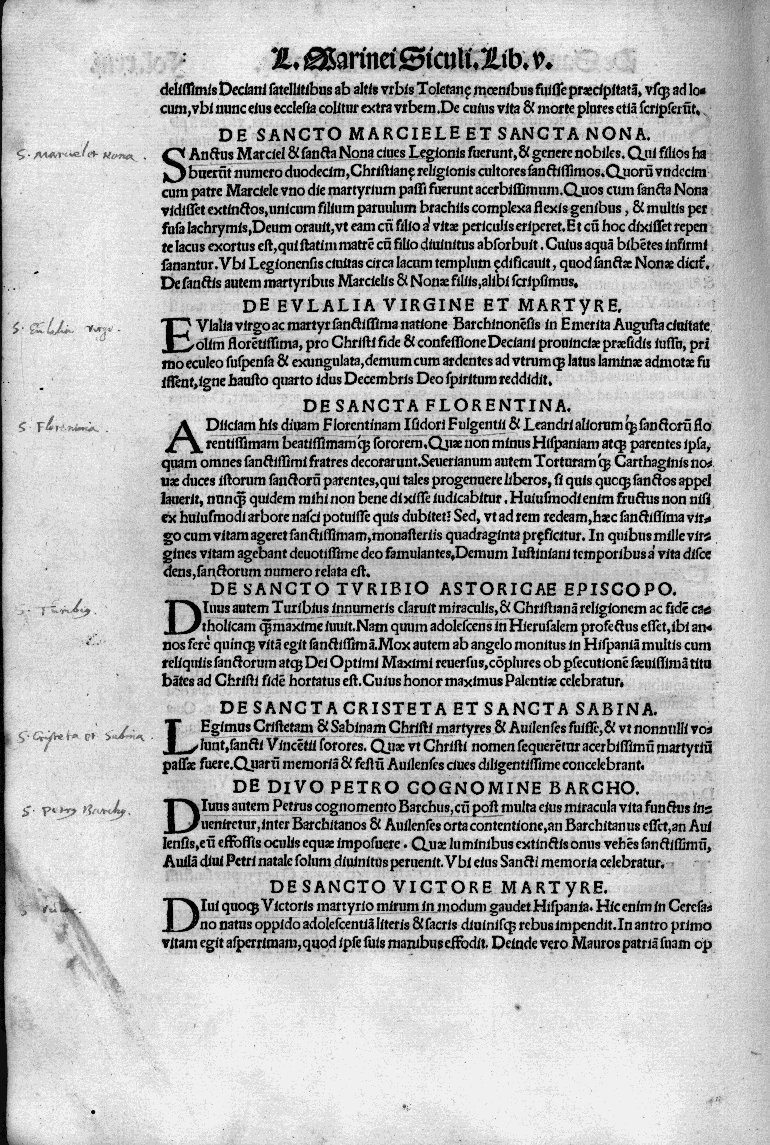 L. Marinei Siculi. Lib. v.
delissimis Deciani satellitibus ab altis vrbis Toletanę mœnibus fuisse præcipitatā, vsq̨ ad lo-
cum, vbi nunc eius ecclesia colitur extra vrbem. De cuius vita & morte plures etiā scripserūt.
DE SANCTO MARCIELE ET SANCTA NONA.
S. Marciel et Nona.
SAnctus Marciel & sancta Nona ciues Legionis fuerunt, & genere nobiles. Qui filios ha
buerūt numero duodecim, Christianę religionis cultores sanctissimos. Quorū vndecim
cum patre Marciele vno die martyrium passi fuerunt acerbissimum. Quos cum sancta Nona
vidisset extinctos, unicum filium paruulum brachiis complexa flexis genibus, & multis per
fusa lachrymis, Deum orauit, vt eam cū filio à vitæ periculis eriperet. Et cū hoc dixisset repen
te lacus exortus est, qui statim matrē cū filio diuinitus absorbuit. Cuius aquā bibētes infirmi
sanantur. Vbi Legionensis ciuitas circa lacum templum ędificauit, quod sanctæ Nonæ dicit̄.
De sanctis autem martyribus Marcielis & Nonæ filiis, alibi scripsimus.
DE EVLALIA VIRGINE ET MARTYRE.
S. Eulalia virgo.
EVlalia virgo ac martyr sanctissima natione Barchinonēsis in Emerita Augusta ciuitate
olim florētissima, pro Christi fide & confessione Deciani prouinciæ præsidis iussu, pri
mo eculeo suspensa & exungulata, demum cum ardentes ad vtrumq̨ latus laminæ admotæ fu
issent, igne hausto quarto idus Decembris Deo spiritum reddidit.
DE SANCTA FLORENTINA.
S. Florentina.
ADiiciam his diuam Florentinam Isidori Fulgentii & Leandri aliorumq̨́ sanctorū flo
rentissimam beatissimamq̨́ sororem. Quæ non minus Hispaniam atq̨ parentes ipsa,
quam omnes sanctissimi fratres decorarunt. Seuerianum autem Torturamq̨́ Carthaginis no-
uæ duces istorum sanctorū parentes, qui tales progenuere liberos, si quis quoq̨ sanctos appel
lauerit, nunq̄ quidem mihi non bene dixisse iudicabitur. Huiusmodi enim fructus non nisi
ex huiusmodi arbore nasci potuisse quis dubitet? Sed, vt ad rem redeam, hæc sanctissima vir-
go cum vitam ageret sanctissimam, monasteriis quadraginta pręficitur. In quibus mille vir-
gines vitam agebant deuotissime deo famulantes. Demum Iustiniani temporibus à vita disce
dens, sanctorum numero relata est.
DE SANCTO TVRIBIO ASTORICAE EPISCOPO.
S. Turibiꝰ.
DIuus autem Turibius innumeris claruit miraculis, & Christianā religionem ac fidē ca-
tholicam q̄maxime iuuit. Nam quum adolescens in Hierusalem profectus esset, ibi an-
nos ferè quinq̨ vitā egit sanctissimā. Mox autem ab angelo monitus in Hispaniā multis cum
reliquiis sanctorum atq̨ Dei Optimi Maximi reuersus, cōplures ob ꝑsecutionē sæuissimā titu
bātes ad Christi fidē hortatus est. Cuius honor maximus Palentiæ celebratur.
DE SANCTA CRISTETA ET SANCTA SABINA.
S. Cristeta et Sabina.
LEgimus Cristetam & Sabinam Christi martyres & Auilenses fuisse, & vt nonnulli vo-
lunt, sancti Vincētii sorores. Quæ vt Christi nomen sequerētur acerbissimū martyriū
passæ fuere. Quarū memoriā & festū Auilenses ciues diligentissime concelebrant.
DE DIVO PETRO COGNOMINE BARCHO.
S. Petrꝰ Barchꝰ.
DIuus autem Petrus cognomento Barchus, cū post multa eius miracula vita functus in-
ueniretur, inter Barchitanos & Auilenses orta contentione, an Barchitanus esset, an Aui
lensis, eū effossis oculis equæ imposuere. Quæ luminibus extinctis onus vehēs sanctissimū,
Auilā diui Petri natale solum diuinitus peruenit. Vbi eius Sancti memoria celebratur.
DE SANCTO VICTORE MARTYRE.
DIui quoq̨ Victoris martyrio mirum in modum gaudet Hispania. Hic enim in Ceresa-
no natus oppido adolescentiā literis & sacris diuinisq̨ rebus impendit. In antro primo
vitam egit asperrimam, quod ipse suis manibus effodit. Deinde vero Mauros patriā suam op